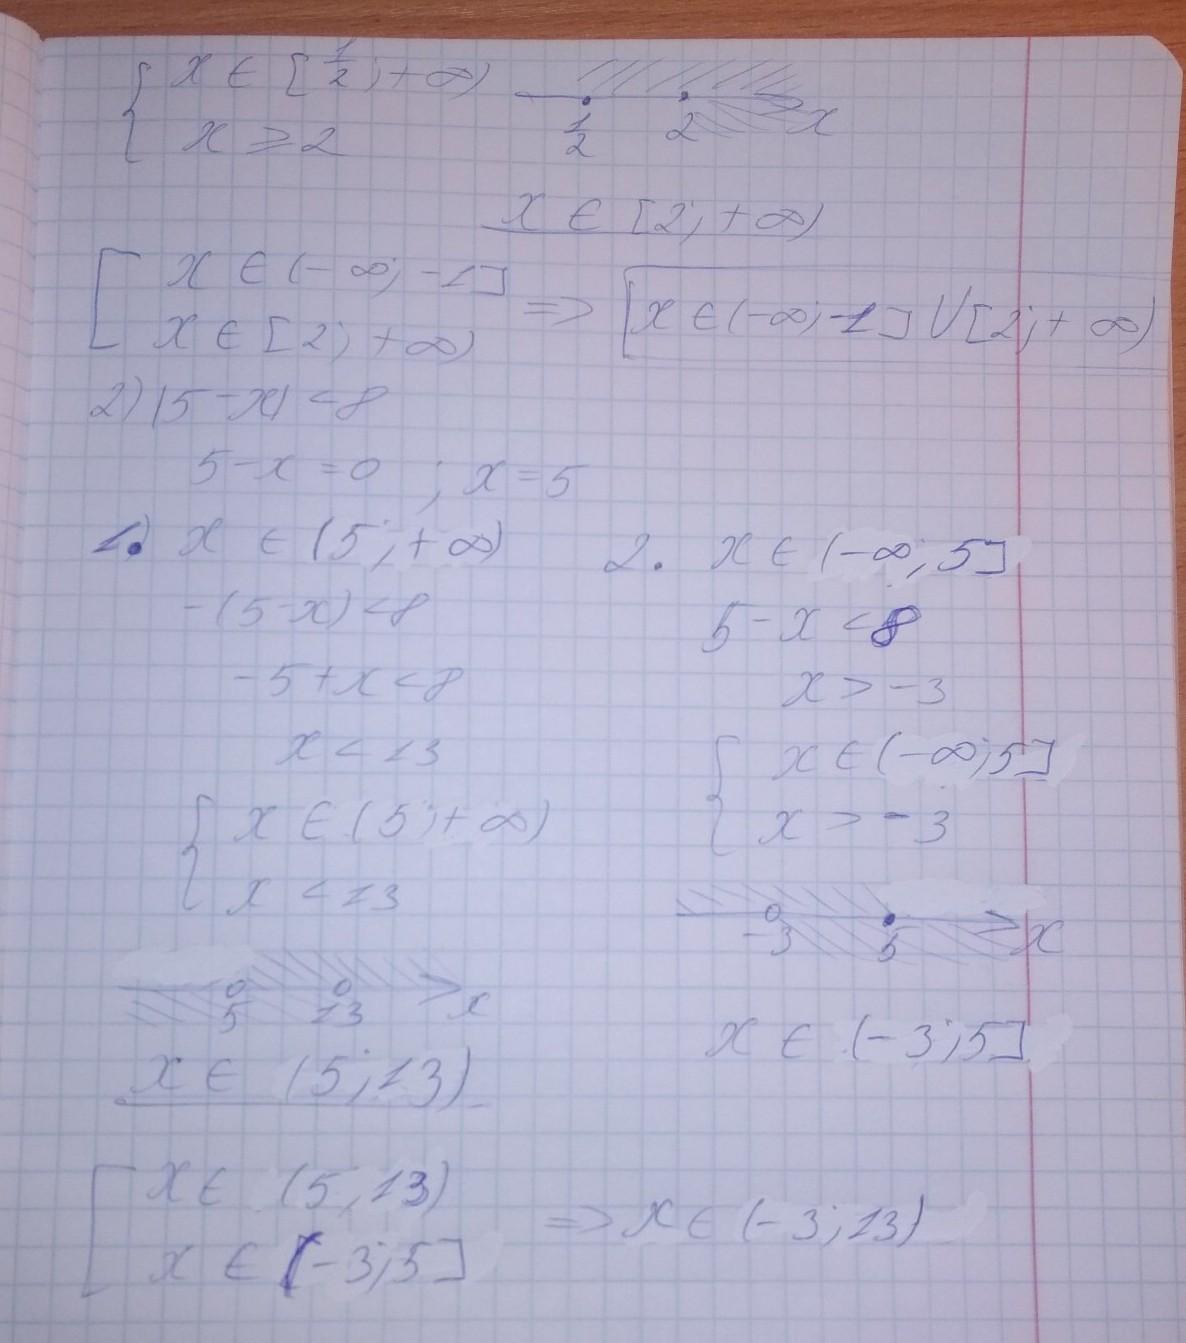 { x ∈ [1/2; +∞)
{ x ≥ 2
1/2 2 x
x ∈ [2; +∞)
[ x ∈ (-∞; -1]
[ x ∈ [2; +∞)
=> [x ∈ (-∞; -1] ∪ [2; +∞)
2) |5 - x| < 8
5 - x = 0 ; x = 5
1.) x ∈ (5; +∞)
-(5-x) < 8
-5 + x < 8
x < 13
{ x ∈ (5; +∞)
{ x < 13
5 13 x
x ∈ (5; 13)
2. x ∈ (-∞; 5]
5 - x < 8
x > -3
{ x ∈ (-∞; 5]
{ x > -3
-3 5 x
x ∈ (-3; 5]
[ x ∈ (5; 13)
[ x ∈ (-3; 5]
=> x ∈ (-3; 13)